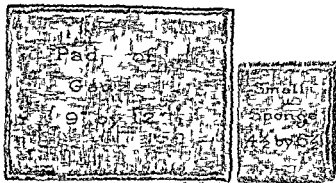 Pad of
Gauze
9 by 12
Small
Sponge
by 5